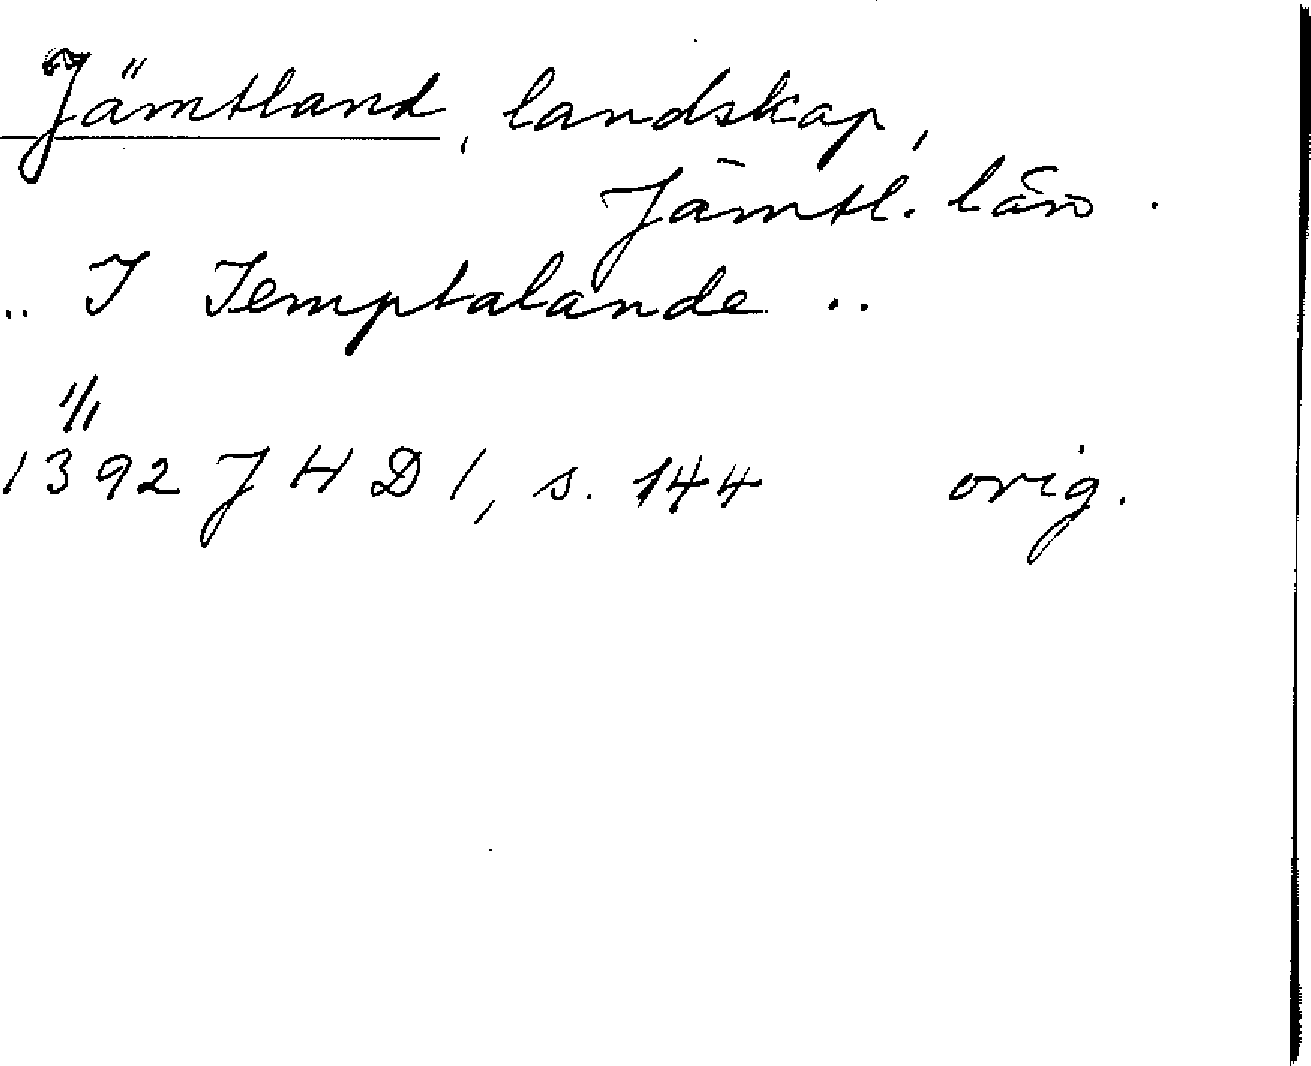 Jämtland, landskap,
Jämtl. län.
.. I Iemptalande ..
1/1
1392 J H D 1, s. 144 orig.